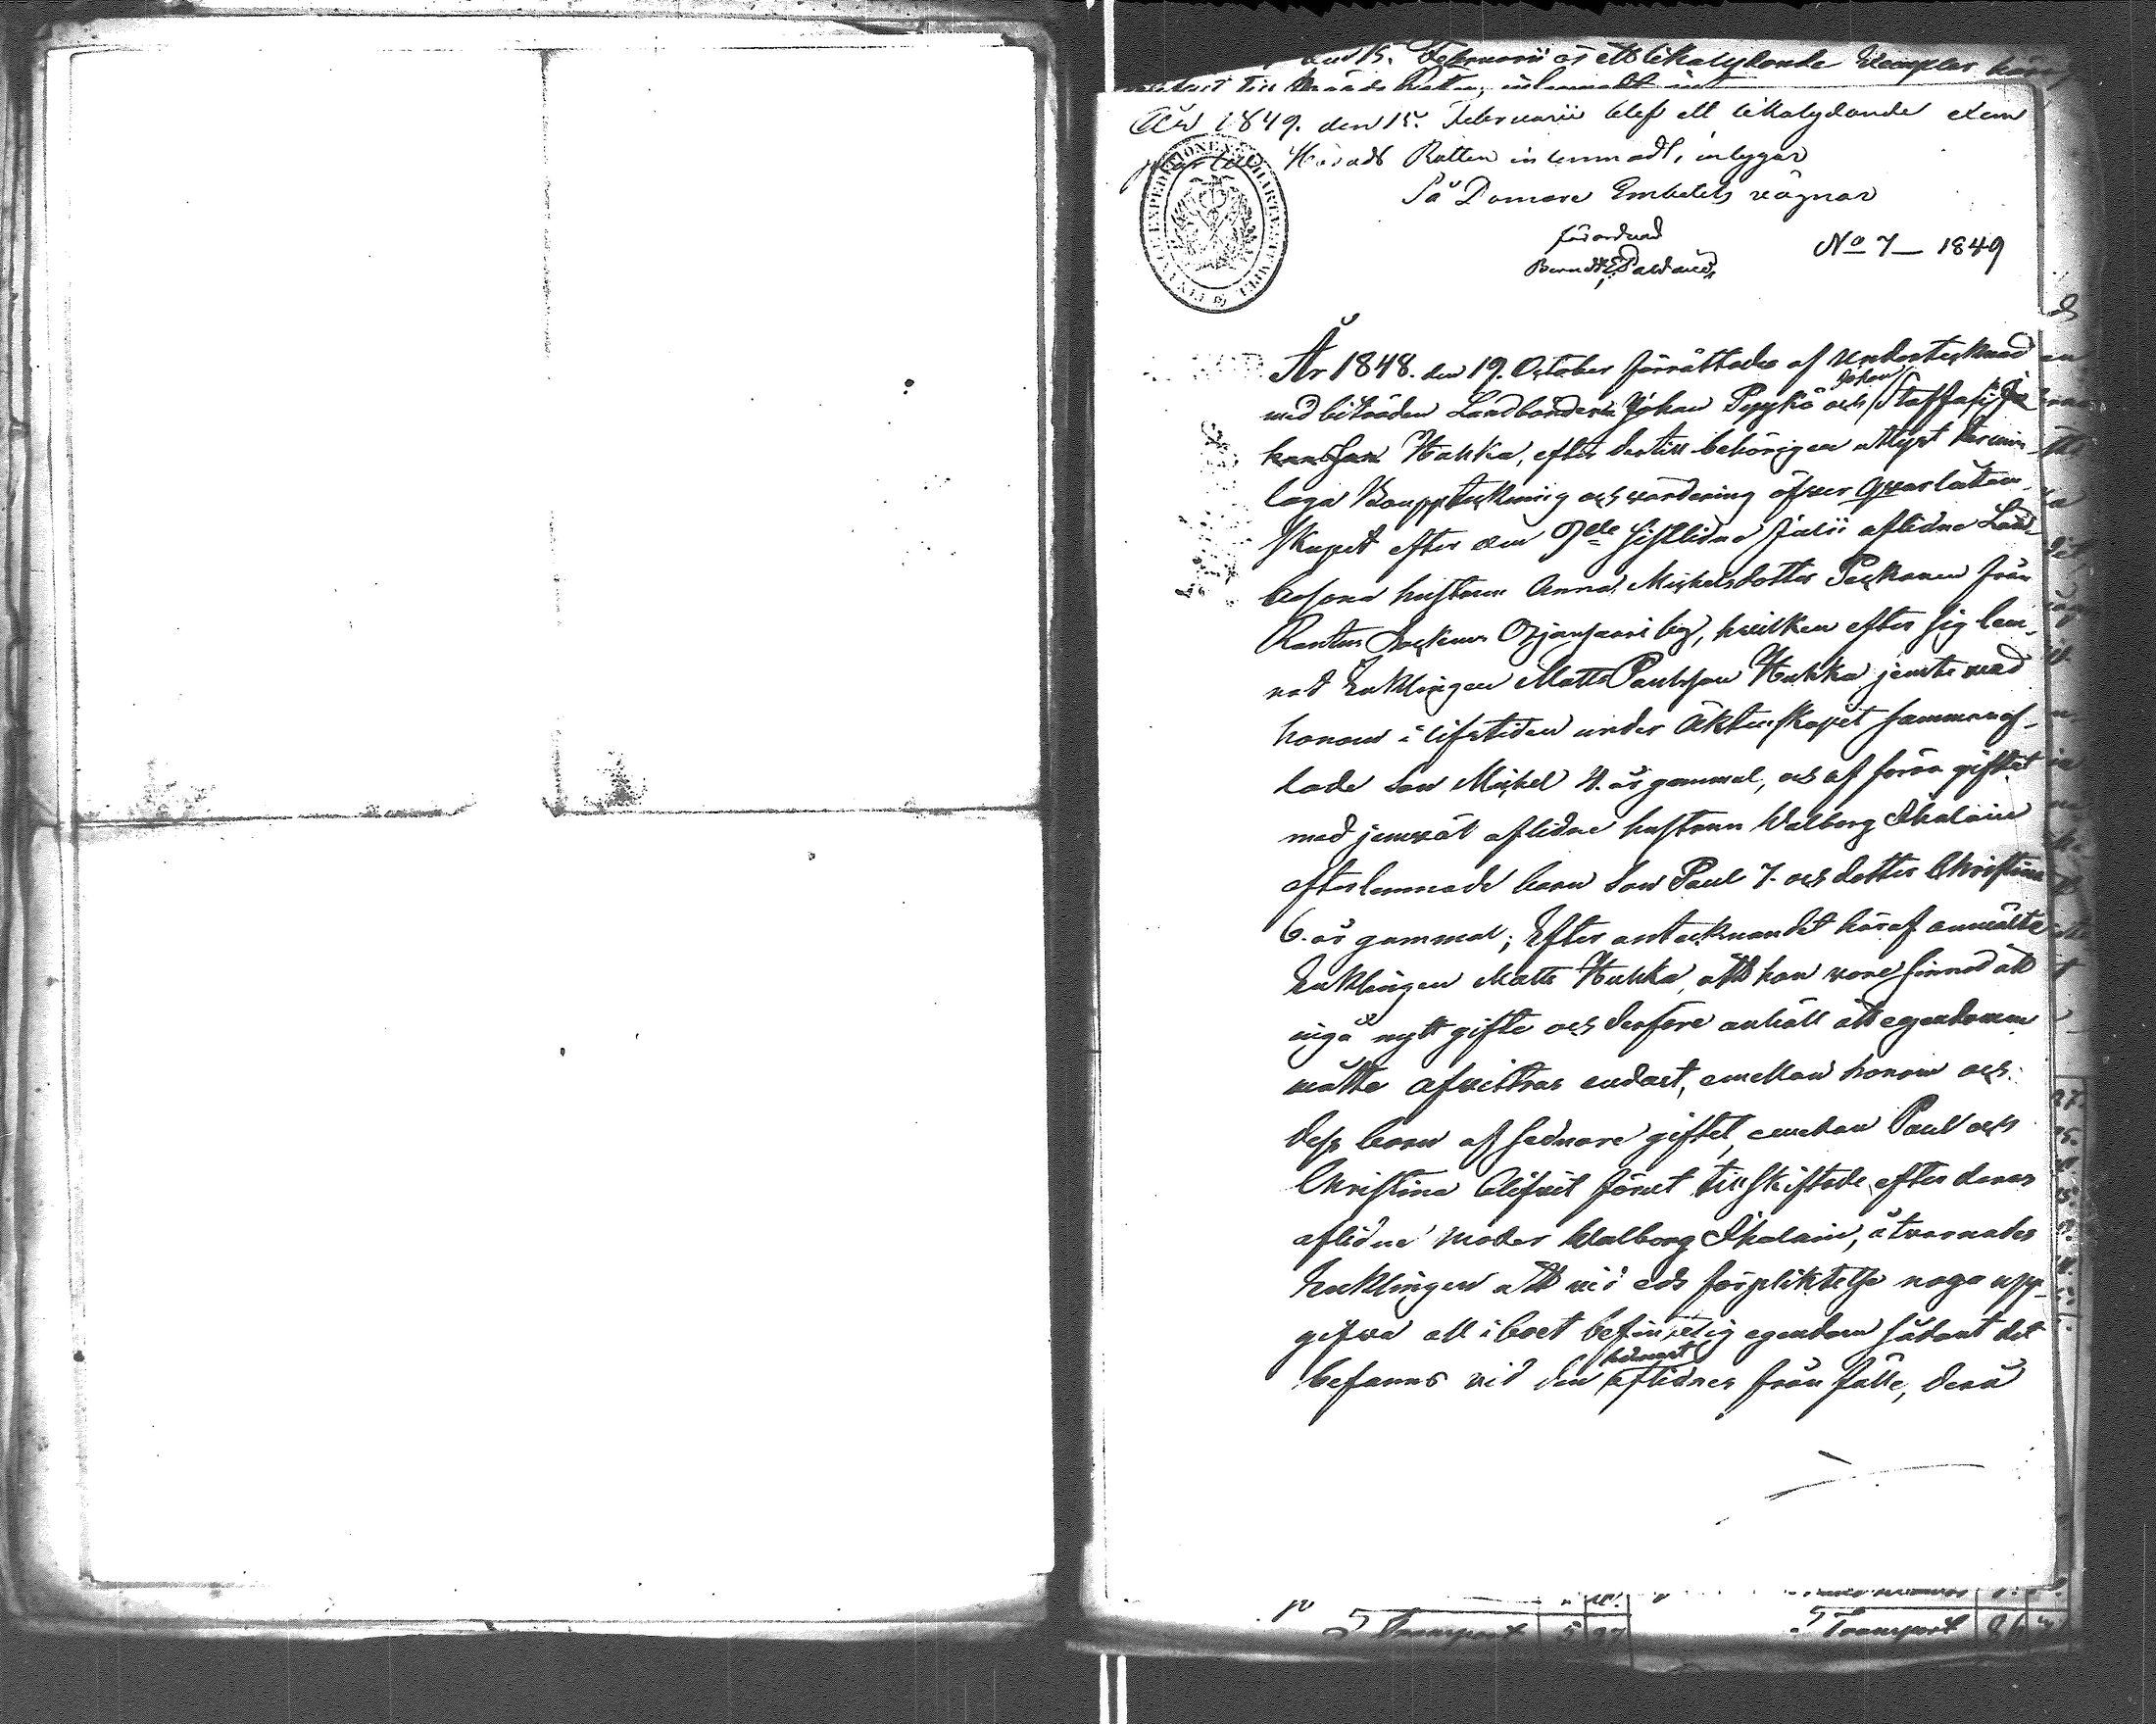 den 15. Februarii är ett likalydande Exemplar
till Härads Rätten, inlemnadt
År 1849. den 15. Februarii blef ett likalydande exem
plar till Härads Rätten inlemnadt, intygar
På Domare Embetets vägnar
förordnad
No 7 — 1849
År 1848. den 19. October förrättades af undertecknad
med biträden Landbönderne Johan Pyykö och Johan Staffans
Hukka, efter dertill behörigen utlyst termin
laga Bouppteckning och värdering öfver qvarlåten-
skapet efter den 9de sistlidne Julii aflidne Land-
bosona hustrun Anna Michelsdotter Peskonen från
Rautus Sockens Orjansaari by, hvilken efter sig lem-
nat Enklingen Matts Paulsson Hukka jemte med
honom i lifstiden under äktenskapet sammanaf-
lade Son Michel 4. år gammal, och af förra giftet
med jemväl aflidne hustrun Walborg Ihalain
efterlemnade barn Son Paul 7. och dotter Christina
6. år gammal; Efter antecknandet häraf anmälte
Enklingen Matts Hukka, att han vore sinnad att
ingå nytt gifte och derföre anhöll att egendomen
måtte afvittras endast, emellan honom och
dess barn af sednare giftet, emedan Paul och
Christina blifvit förut tillskiftade efter deras
aflidne moder Walborg Ihalain, åtvarnades
Enklingen att vid eds förpliktelse noga upp-
gifva all i boet befintelig egendom sådant det
befanns vid den sednast aflidnes frånfälle, derå
Transport 5
Transport 86